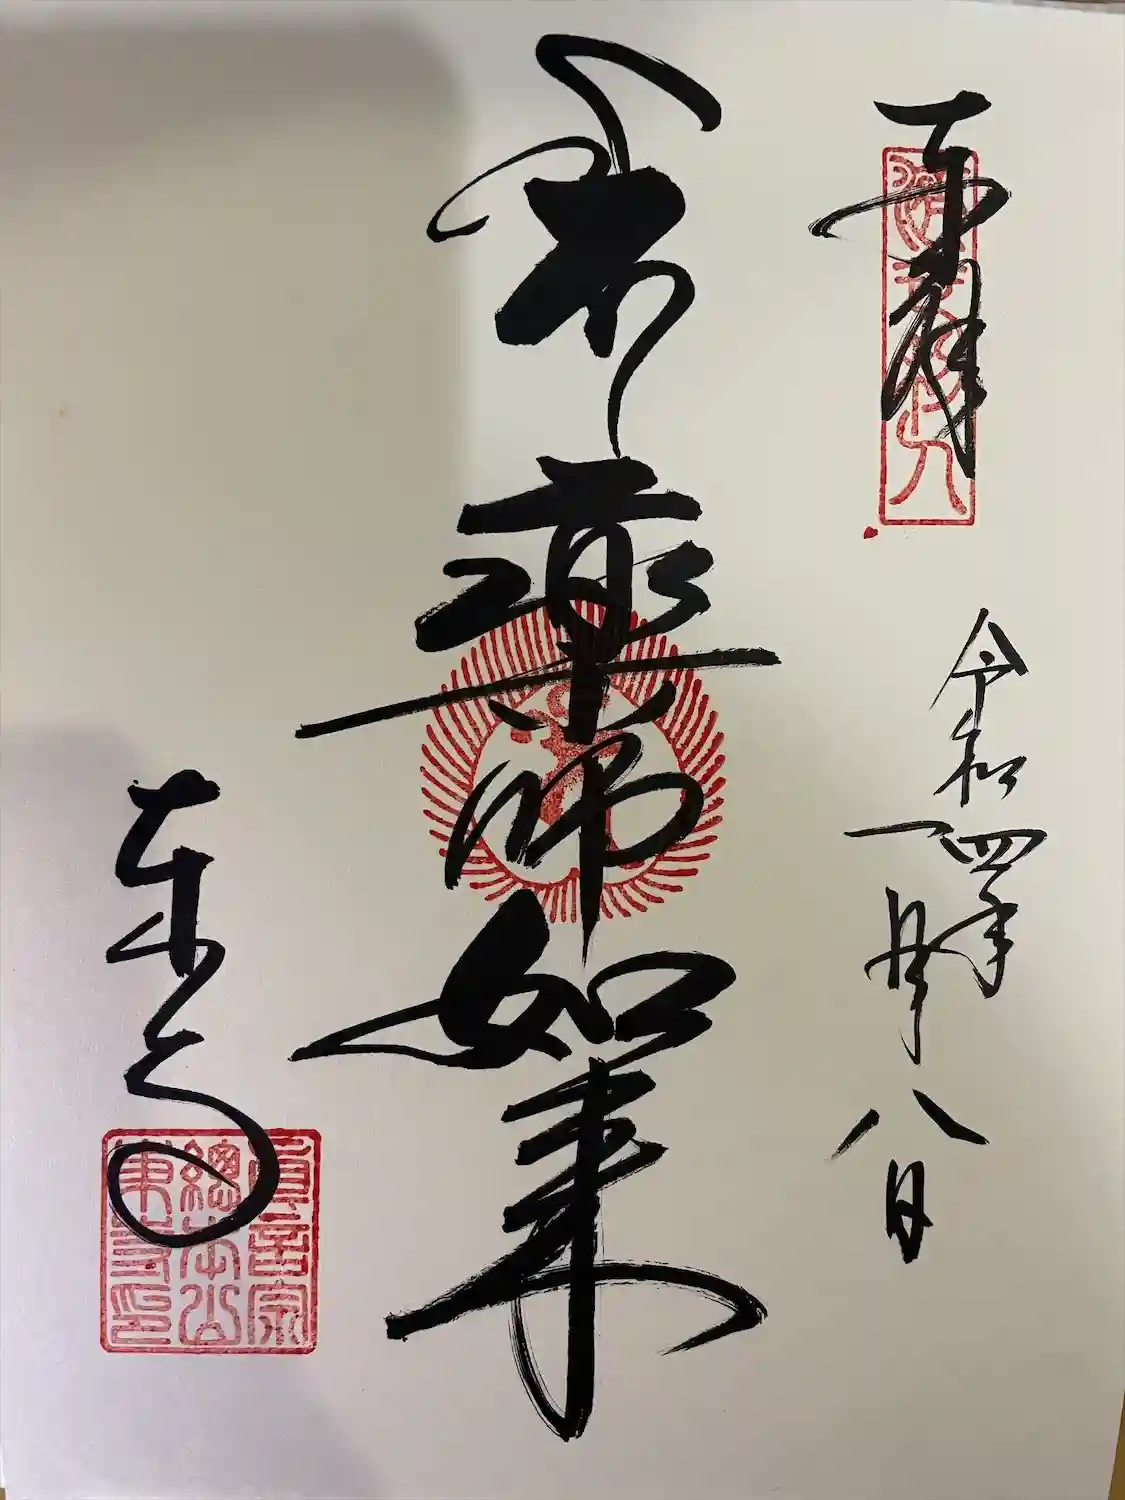 奉拝
令和四年
一月八日
薬師如来
東寺
真言宗
總本山
東寺印